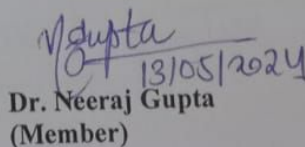 Ngupta
13/05/2024
Dr. Neeraj Gupta
(Member)